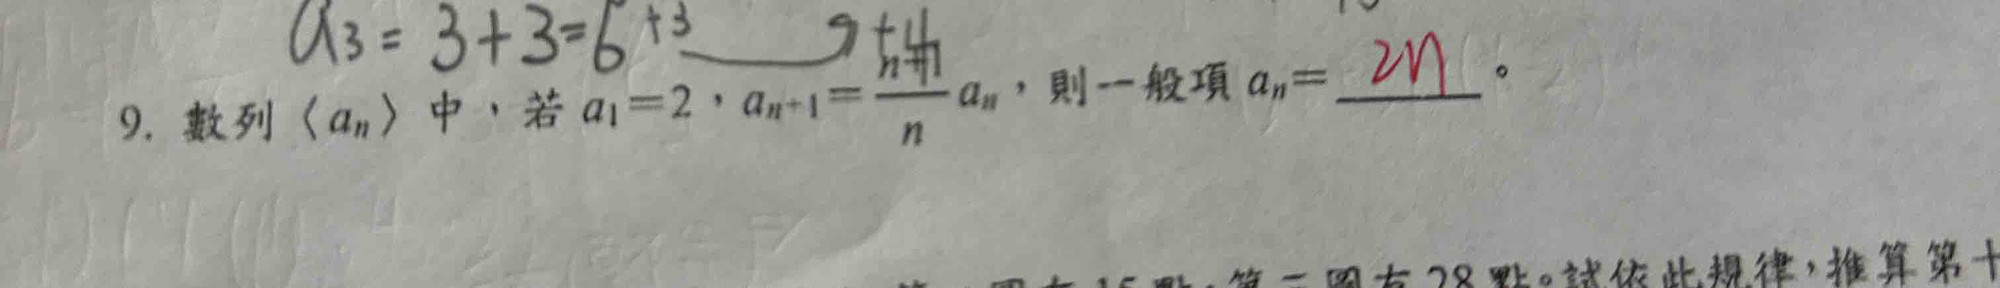 a₃ = 3+3=6 +3 9 +4
9. 數列〈aₙ〉中，若 a₁=2，aₙ₊₁= (n+1)/n aₙ，則一般項 aₙ= 2n 。
15 點，第二圖有 28 點。試依此規律，推算第十